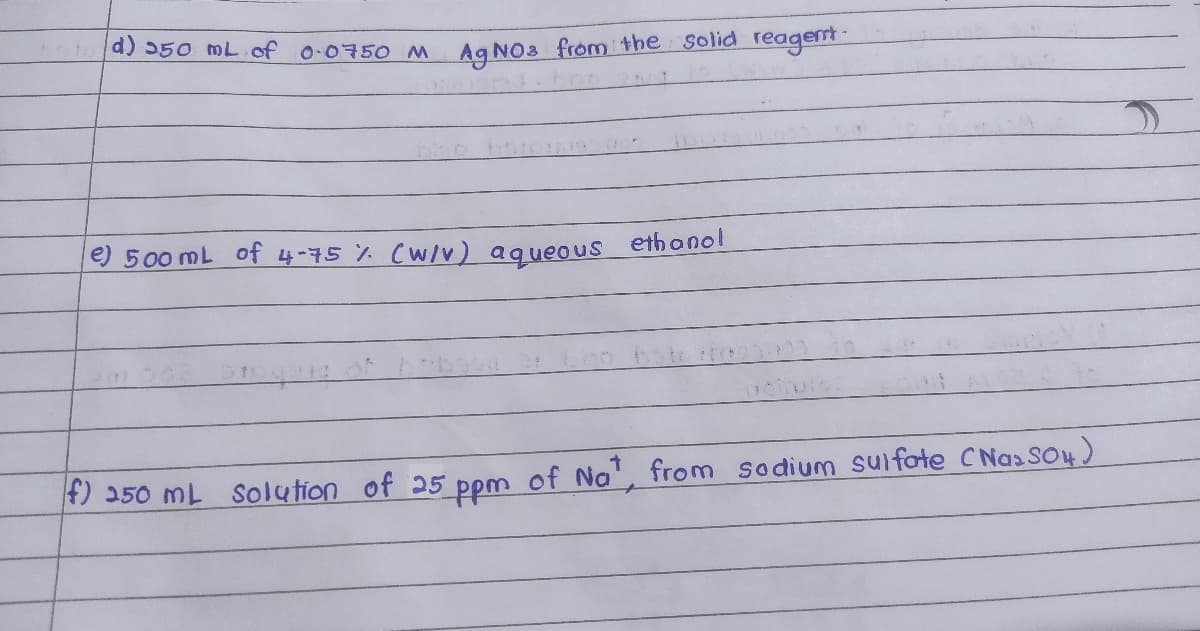 d) 250 mL of 0.0750 M AgNO3 from the solid reagent.
e) 500 mL of 4-75 % (w/v) aqueous ethanol
f) 250 mL solution of 25 ppm of Na+, from sodium sulfate (Na2SO4)